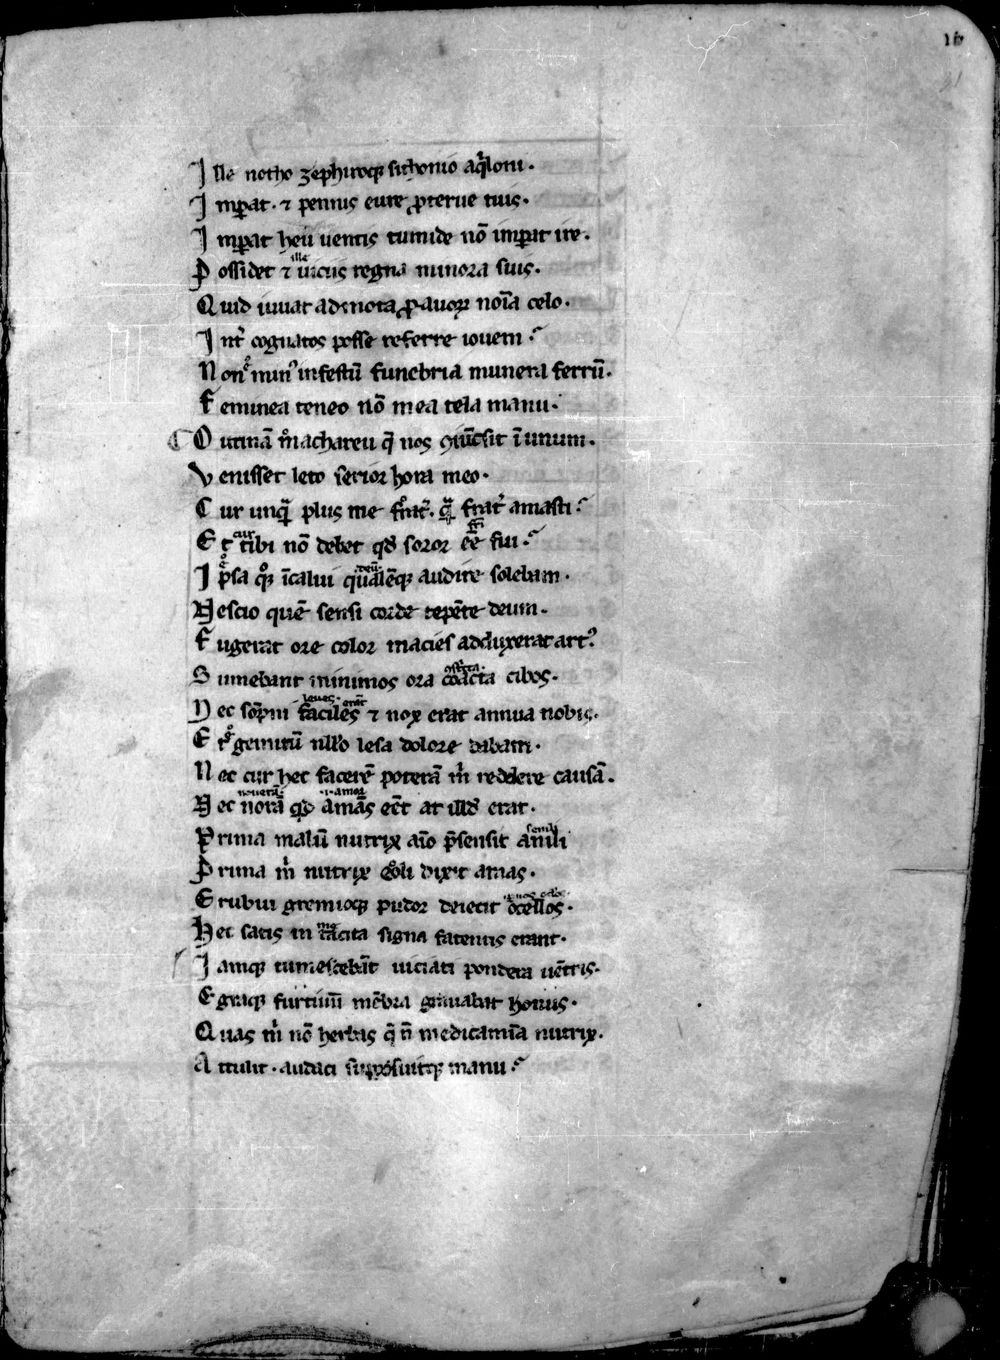 Ille notho zephiroqꝫ sithonio aqͥloni·
Imꝑat· ⁊ pennis eure ꝓterue tuis·
Imꝑat heu uentis tumide nō imꝑat ire·
Possidet ⁊ uiciis regna minora suis·
ille
Quid iuuat admota ꝓauoꝝ noīa celo·
Int̉ cognatos posse referre iouem ?
Non mīꝰ infestū funebria munera ferrū·
Feminea teneo nō mea tela manu·
O utinā machareu q̄ nos ꝯiūcsit ī unum·
Venisset leto serior hora meo·
Cur unqͣ plus me frat̉· qͣ frat̉ amasti ?
Et tibi nō debet qd̓ soror eē̄ fui ?
Ipsa qͦꝫ īcalui qualēqꝫ audire solebam·
Nescio quē sensi corde tepēte deum·
Fugerat ore color macies adduxerat artꝰ
Sumebant minimos ora coacta cibos·
Nec sōpni faciles ⁊ nox erat annua nobis·
leues·
Et gemitū nllo lesa dolore dabam·
Nec cur hec facerē poterā m̉ reddere causā·
Nec norā qd̓ amās eēt at illd̓ erat·
noueraꝫ amor
Prima malū nutrix aīo p̄sensit anili
Prima m̉ nutrix eoli dixit amas·
Erubui gremioqꝫ pudor deiecit ocellos·
Hec satis in tacita signa fatentis erant·
Iamqꝫ tumescebāt uiciati pondera uētris·
Egraqꝫ furtiuū mēbra grauabat honus·
Quas m̉ nō herbas q̄ n̄ medicamīa nutrix·
Attulit· audaci supposuitqꝫ manu ?